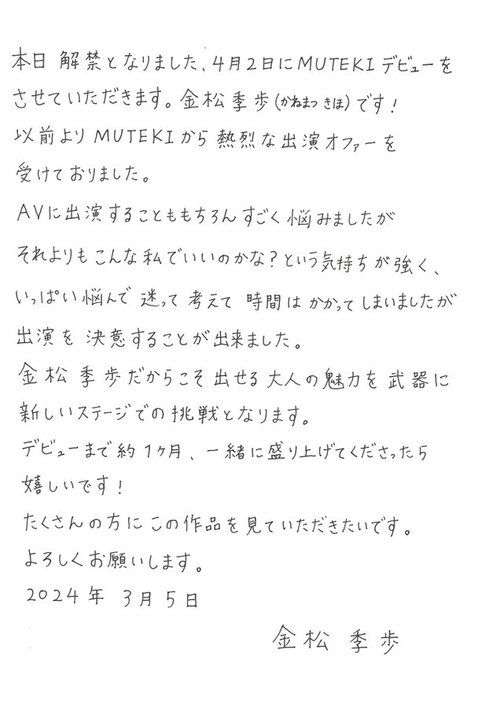 本日 解禁となりました、4月2日にMUTEKIデビューを
させていただきます。金松季歩(かねまつ きほ)です!
以前よりMUTEKIから熱烈な出演オファーを
受けておりました。
AVに出演することももちろんすごく悩みましたが
それよりもこんな私でいいのかな?という気持ちが強く、
いっぱい悩んで 迷って 考えて 時間は かかってしまいましたが
出演を 決意することが出来ました。
金松季歩だからこそ出せる大人の魅力を武器に
新しいステージでの挑戦となります。
デビューまで約1ヶ月、一緒に盛り上げてくださったら
嬉しいです!
たくさんの方にこの作品を見ていただきたいです。
よろしくお願いします。
2024年 3月5日
金松 季歩